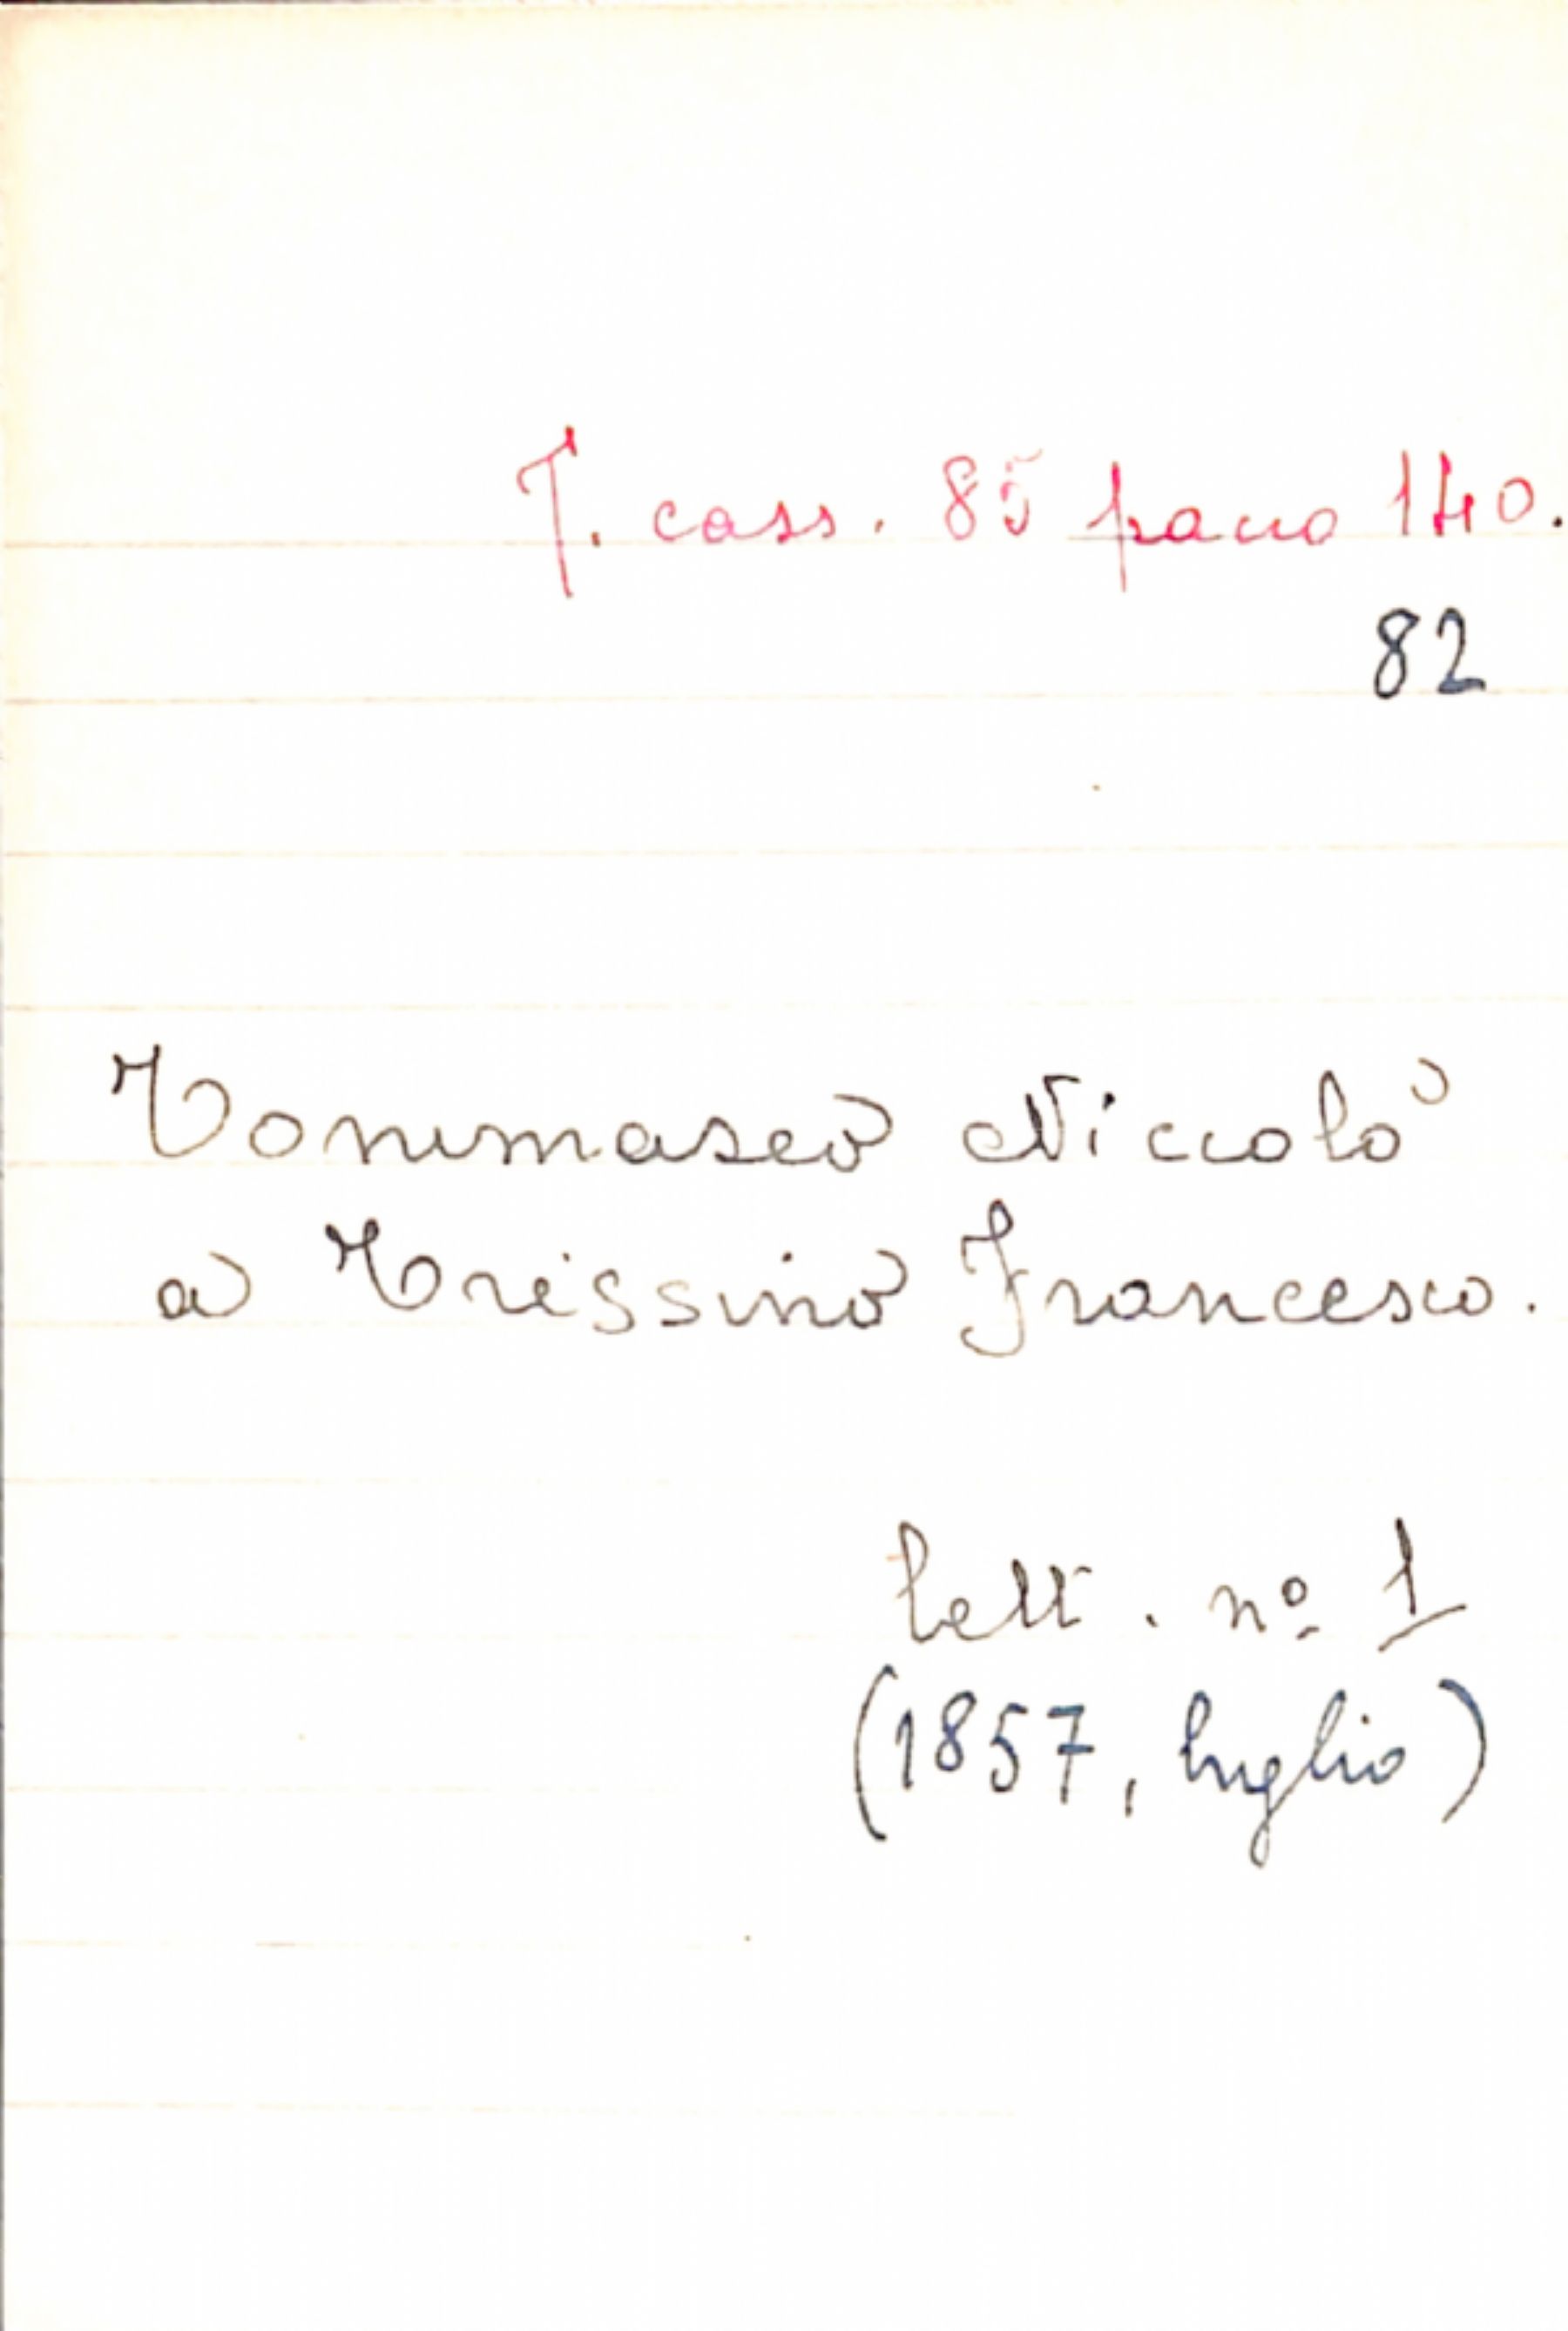 T. cass. 85 pacco 140.
82
Tommaseo Niccolò
a Trissino Francesco.
lett. nº 1
(1857, luglio)